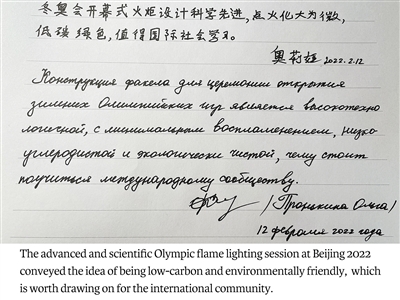 冬奥会开幕式火炬设计科学先进，点火化大为微，
低碳绿色，值得国际社会学习。
奥莉娅 2022.2.12
Конструкция факела для церемонии открытия
зимних Олимпийских игр является высокотехно
логичной, с минимальным воспламенением, низко
углеродистой и экологически чистой, чему стоит
поучиться международному сообществу.
/Пронькина Ольга/
12 февраля 2022 года
The advanced and scientific Olympic flame lighting session at Beijing 2022
conveyed the idea of being low-carbon and environmentally friendly, which
is worth drawing on for the international community.